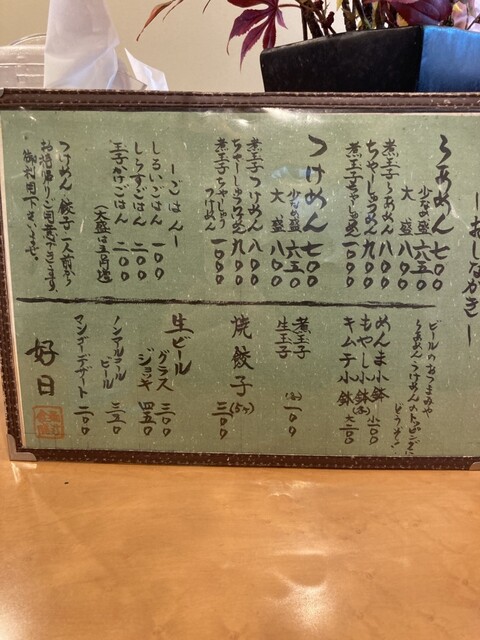 ーおしながきー
らあめん 七〇〇
少なめ盛 六五〇
大盛 八〇〇
煮玉子らあめん 八〇〇
ちゃーしゅうめん 九〇〇
煮玉子ちゃーしゅうめん 一〇〇〇
つけめん 七〇〇
少なめ盛 六五〇
大盛 八〇〇
煮玉子つけめん 八〇〇
ちゃーしゅうつけめん 九〇〇
煮玉子ちゃーしゅうつけめん 一〇〇〇
ーごはんー
しろいごはん 一〇〇
しらすごはん 二〇〇
玉子かけごはん 二〇〇
(大盛は五十円増)
つけめん 餃子一人前から
お持帰りご用意できます
御利用下さいませ。
ビールのおつまみや
らあめん、つけめんのトッピングに
どうぞ!
めんま小鉢
もやし小鉢(各) 小一〇〇
キムチ小鉢 大二〇〇
煮玉子
生玉子 (各)一〇〇
焼餃子(5ヶ) 三〇〇
生ビール グラス 三〇〇
ジョッキ 四五〇
ノンアルコールビール 三五〇
マンゴーデザート 二〇〇
好日